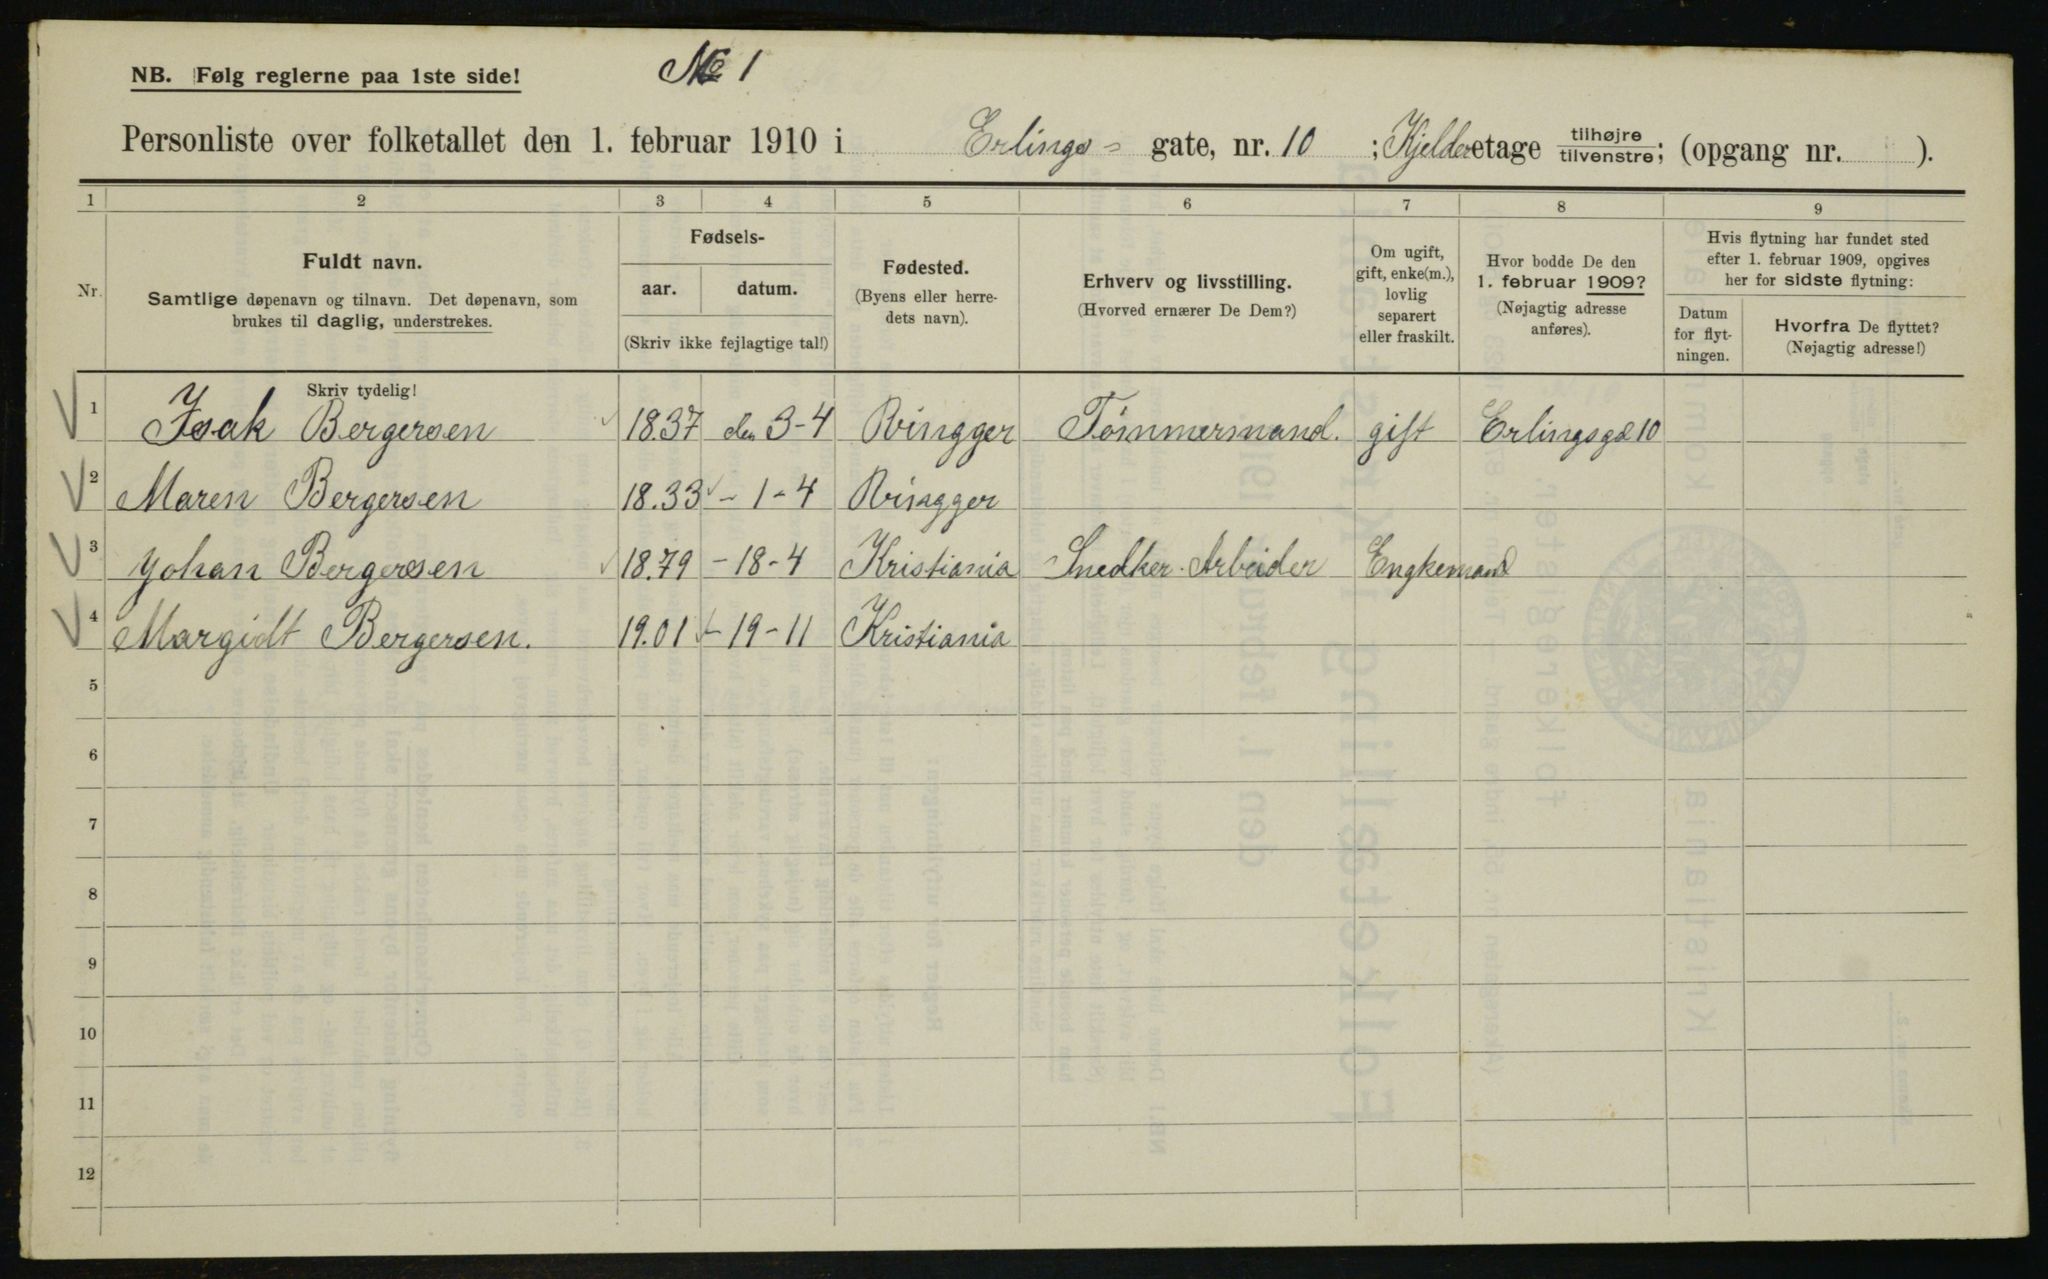 NB. Følg reglerne paa 1ste side!
№ 1
Personliste over folketallet den 1. februar 1910 i Erlings- gate, nr. 10 ; Kjelder etage tilhøjre tilvenstre; (opgang nr. ).
1 2 3 4 5 6 7 8 9
Nr.
Fuldt navn.
Samtlige døpenavn og tilnavn. Det døpenavn, som
brukes til daglig, understrekes.
Fødsels-
aar. datum.
(Skriv ikke fejlagtige tal!)
Fødested.
(Byens eller herre-
dets navn).
Erhverv og livsstilling.
(Hvorved ernærer De Dem?)
Om ugift,
gift, enke(m.),
lovlig
separert
eller fraskilt.
Hvor bodde De den
1. februar 1909?
(Nøjagtig adresse
anføres).
Hvis flytning har fundet sted
efter 1. februar 1909, opgives
her for sidste flytning:
Datum
for flyt-
ningen.
Hvorfra De flyttet?
(Nøjagtig adresse!)
Skriv tydelig!
1 Isak Bergersen 18.37 den 3-4 Ringger Tømmermand. gift Erlingsgd 10
2 Maren Bergersen 18.33 - 1-4 Ringger
3 Johan Bergersen 18.79 - 18-4 Kristiania Snedker Arbeider Engkemand
4 Margidt Bergersen. 19.01 - 19-11 Kristiania
5
6
7
8
9
10
11
12